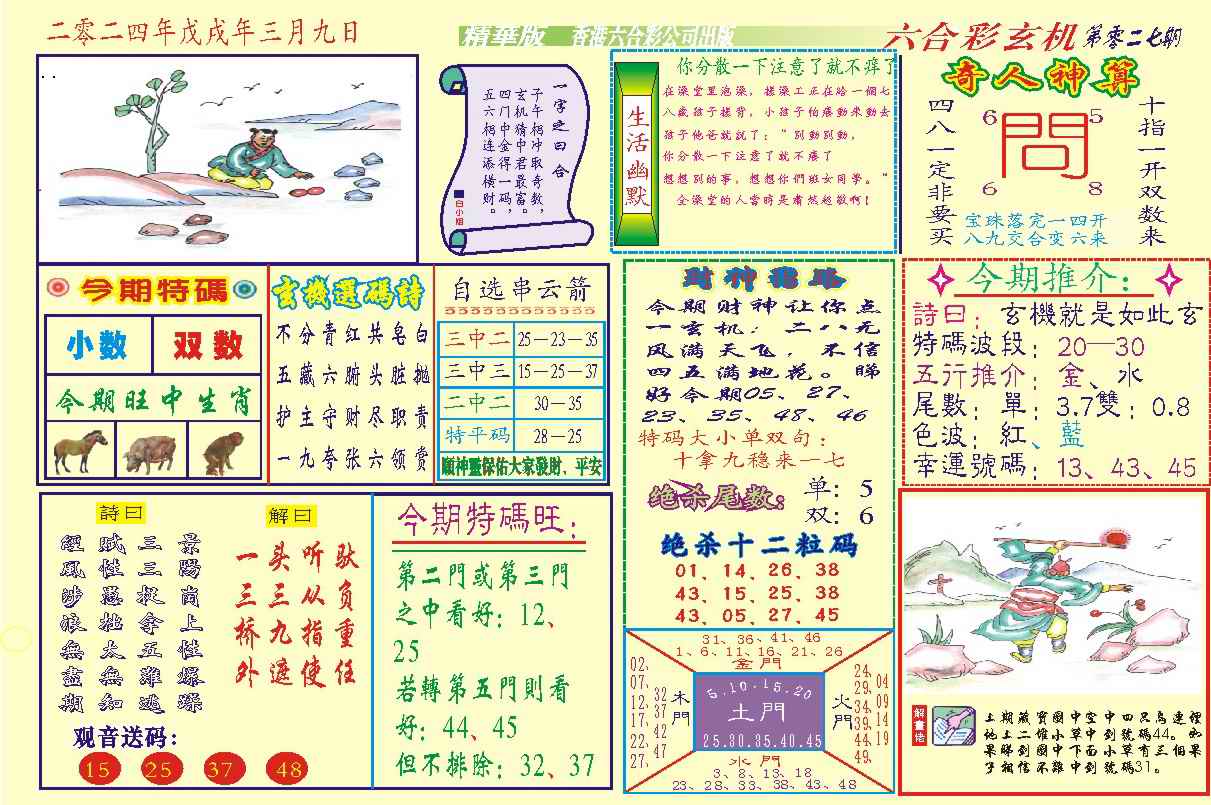 二零二四年戊戌年三月九日
精華版 香港六合彩公司出版
六合彩玄机 第零二七期
一字之曰合
子午相冲取奇数，
玄机猜中君最富。
四门中金得一码，
五六相连添横财。
白小姐
生活幽默
你分散一下注意了就不痒了
在澡堂里泡澡，搓澡工正在给一個七
八歲孩子搓背，小孩子怕癢動來動去
孩子他爸就說了：“別動別動，
你分散一下注意了就不癢了
想想別的事，想想你們班女同學。”
全澡堂的人當時是肅然起敬啊！
奇人神算
四八一定非要买
6 5
問
6 8
十指一开双数来
宝珠落完一四开
八九交合变六来
今期特碼
小数 双数
今期旺中生肖
玄機選碼詩
不分青红共皂白
五藏六腑头脏抛
护主守财尽职责
一九夸张六领赏
自选串云箭
三中二 25—23—35
三中三 15—25—37
二中二 30—35
特平码 28—25
願神靈保佑大家發財、平安
财神指路
今期财神让你点
一玄机：二八无
风满天飞，不信
四五满地花。睇
好今期05、27、
23、35、48、46
特码大小单双句：
十拿九稳来一七
绝杀尾数：
单：5
双：6
绝杀十二粒码
01、14、26、38
43、15、25、38
43、05、27、45
今期推介：
詩曰：玄機就是如此玄
特碼波段：20—30
五行推介：金、水
尾數：單：3.7雙：0.8
色波：紅、藍
幸運號碼：13、43、45
詩曰
景陽岗上性爆躁
三三捉拿五難逃
賦性愚拙太無知
經風涉浪無盡期
解曰
驮负重任
听从指使
头三九遮
一三桥外
观音送码：
15 25 37 48
今期特碼旺：
第二門或第三門
之中看好：12、
25
若轉第五門則看
好：44、45
但不排除：32、37
31、36、41、46
1、6、11、16、21、26
金門
02、07、12、17、22、27、
32 37 42 47
木門
5.10.15.20
土門
25.30.35.40.45
火門
24、29、34、39、44、49、
04 09 14 19
水門
3、8、13、18
23、28、33、38、43、48
解畫佬
上期藏寶圖中空中四只鳥連裡
地上二堆小草中到號碼44。如
果睇到圖中下面小草有三個果
子相信不難中到號碼31。